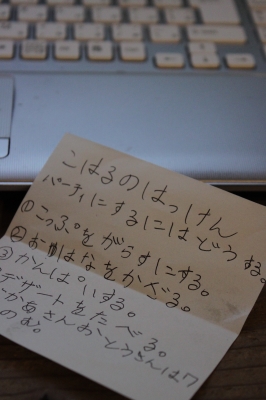 こはるのはっけん
パーティにするにはどうする。
①こっぷをがらすにする。
②おはなをかざる。
③かんぱいする。
デザートをたべる。
かあさんおとうさんは
のむ。